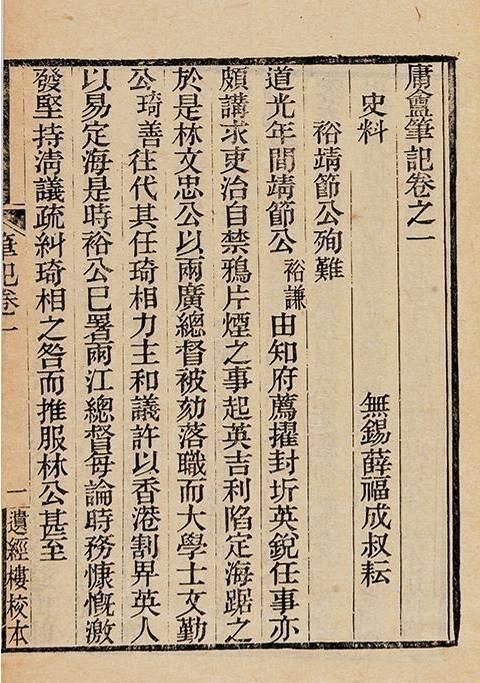 庸盦筆記卷之一
史料　無錫薛福成叔耘
裕靖節公殉難
道光年間靖節公裕謙由知府薦擢封圻英銳任事亦
頗講求吏治自禁鴉片煙之事起英吉利陷定海踞之
於是林文忠公以兩廣總督被劾落職而大學士文勤
公琦善往代其任琦相力主和議許以香港割畀英人
以易定海是時裕公已署兩江總督每論時務慷慨激
發堅持淸議疏糾琦相之咎而推服林公甚至
筆記卷一
一
遺經樓校本